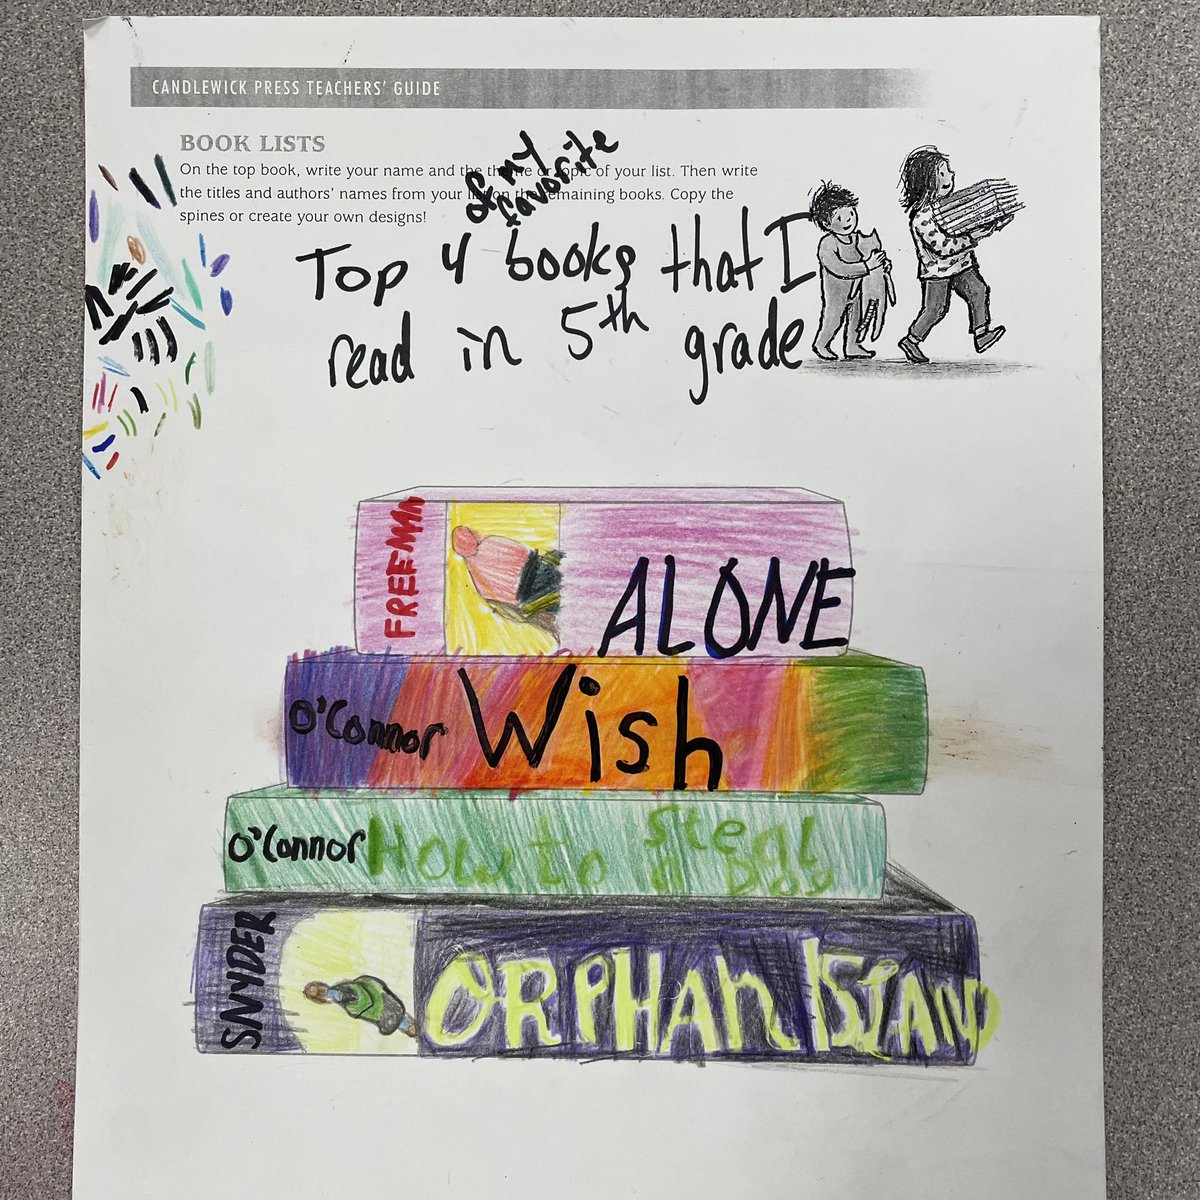 CANDLEWICK PRESS TEACHERS' GUIDE
BOOK LISTS
On the top book, write your name and the theme or topic of your list. Then write
the titles and authors' names from your list on the remaining books. Copy the
spines or create your own designs!
of my
favorite
Top 4 books that I
read in 5th grade
FREEMAN
ALONE
O'Connor Wish
O'Connor How to Steal
a Dog
SNYDER
ORPHAN ISLAND